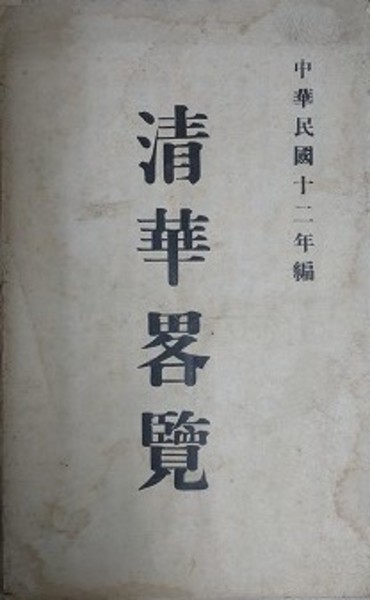 中華民國十二年編
清華畧覽